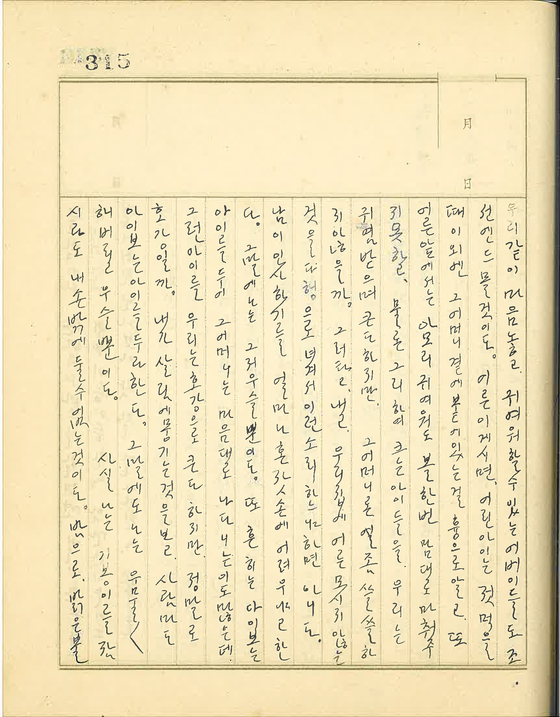 315
月
日
우리같이 마음놓고 귀여워할수 있는 어버이들도 조
선엔 드물것이다. 어른이 계시면, 어린아이는 젖 먹을
때 이외엔 그 어머니 곁에 붙어있는걸 흉으로 알고, 또
어른앞에서는 아모리 귀여워도 볼 한번 맘대로 마춰주
지 못하고, 물론 그리하여 크는 아이들을, 우리는
귀염받으며 큰다 하지만, 그 어머니론 얼좀 쓸쓸하
지 않을까. 그렇다고, 내가 우리집에 어른 모시지 않는
것을 다행으로 녁여서 이런소리 하느냐 하면 아니다.
남이 인사하기를 얼마나 혼자손에 어려우냐고 한
다. 그말에 나는 그저 우슬뿐이다. 또 흔히는 아이보는
아이를 두어 그 어머니는 마음대로 나다니는이도 많은데,
그런아이를 우리는 호강으로 큰다 하지만, 정말로
호강일까. 내가 살림에 뭉기는것을 보고, 사람마다
아이보는아이를 두라 한다. 그말에도 나는 유쾌
해버릴 우슬뿐이다. 사실 나는 기봉이를 잠
시라도 내 손밖에 둘수없는것이다. 밤으로, 맑은물